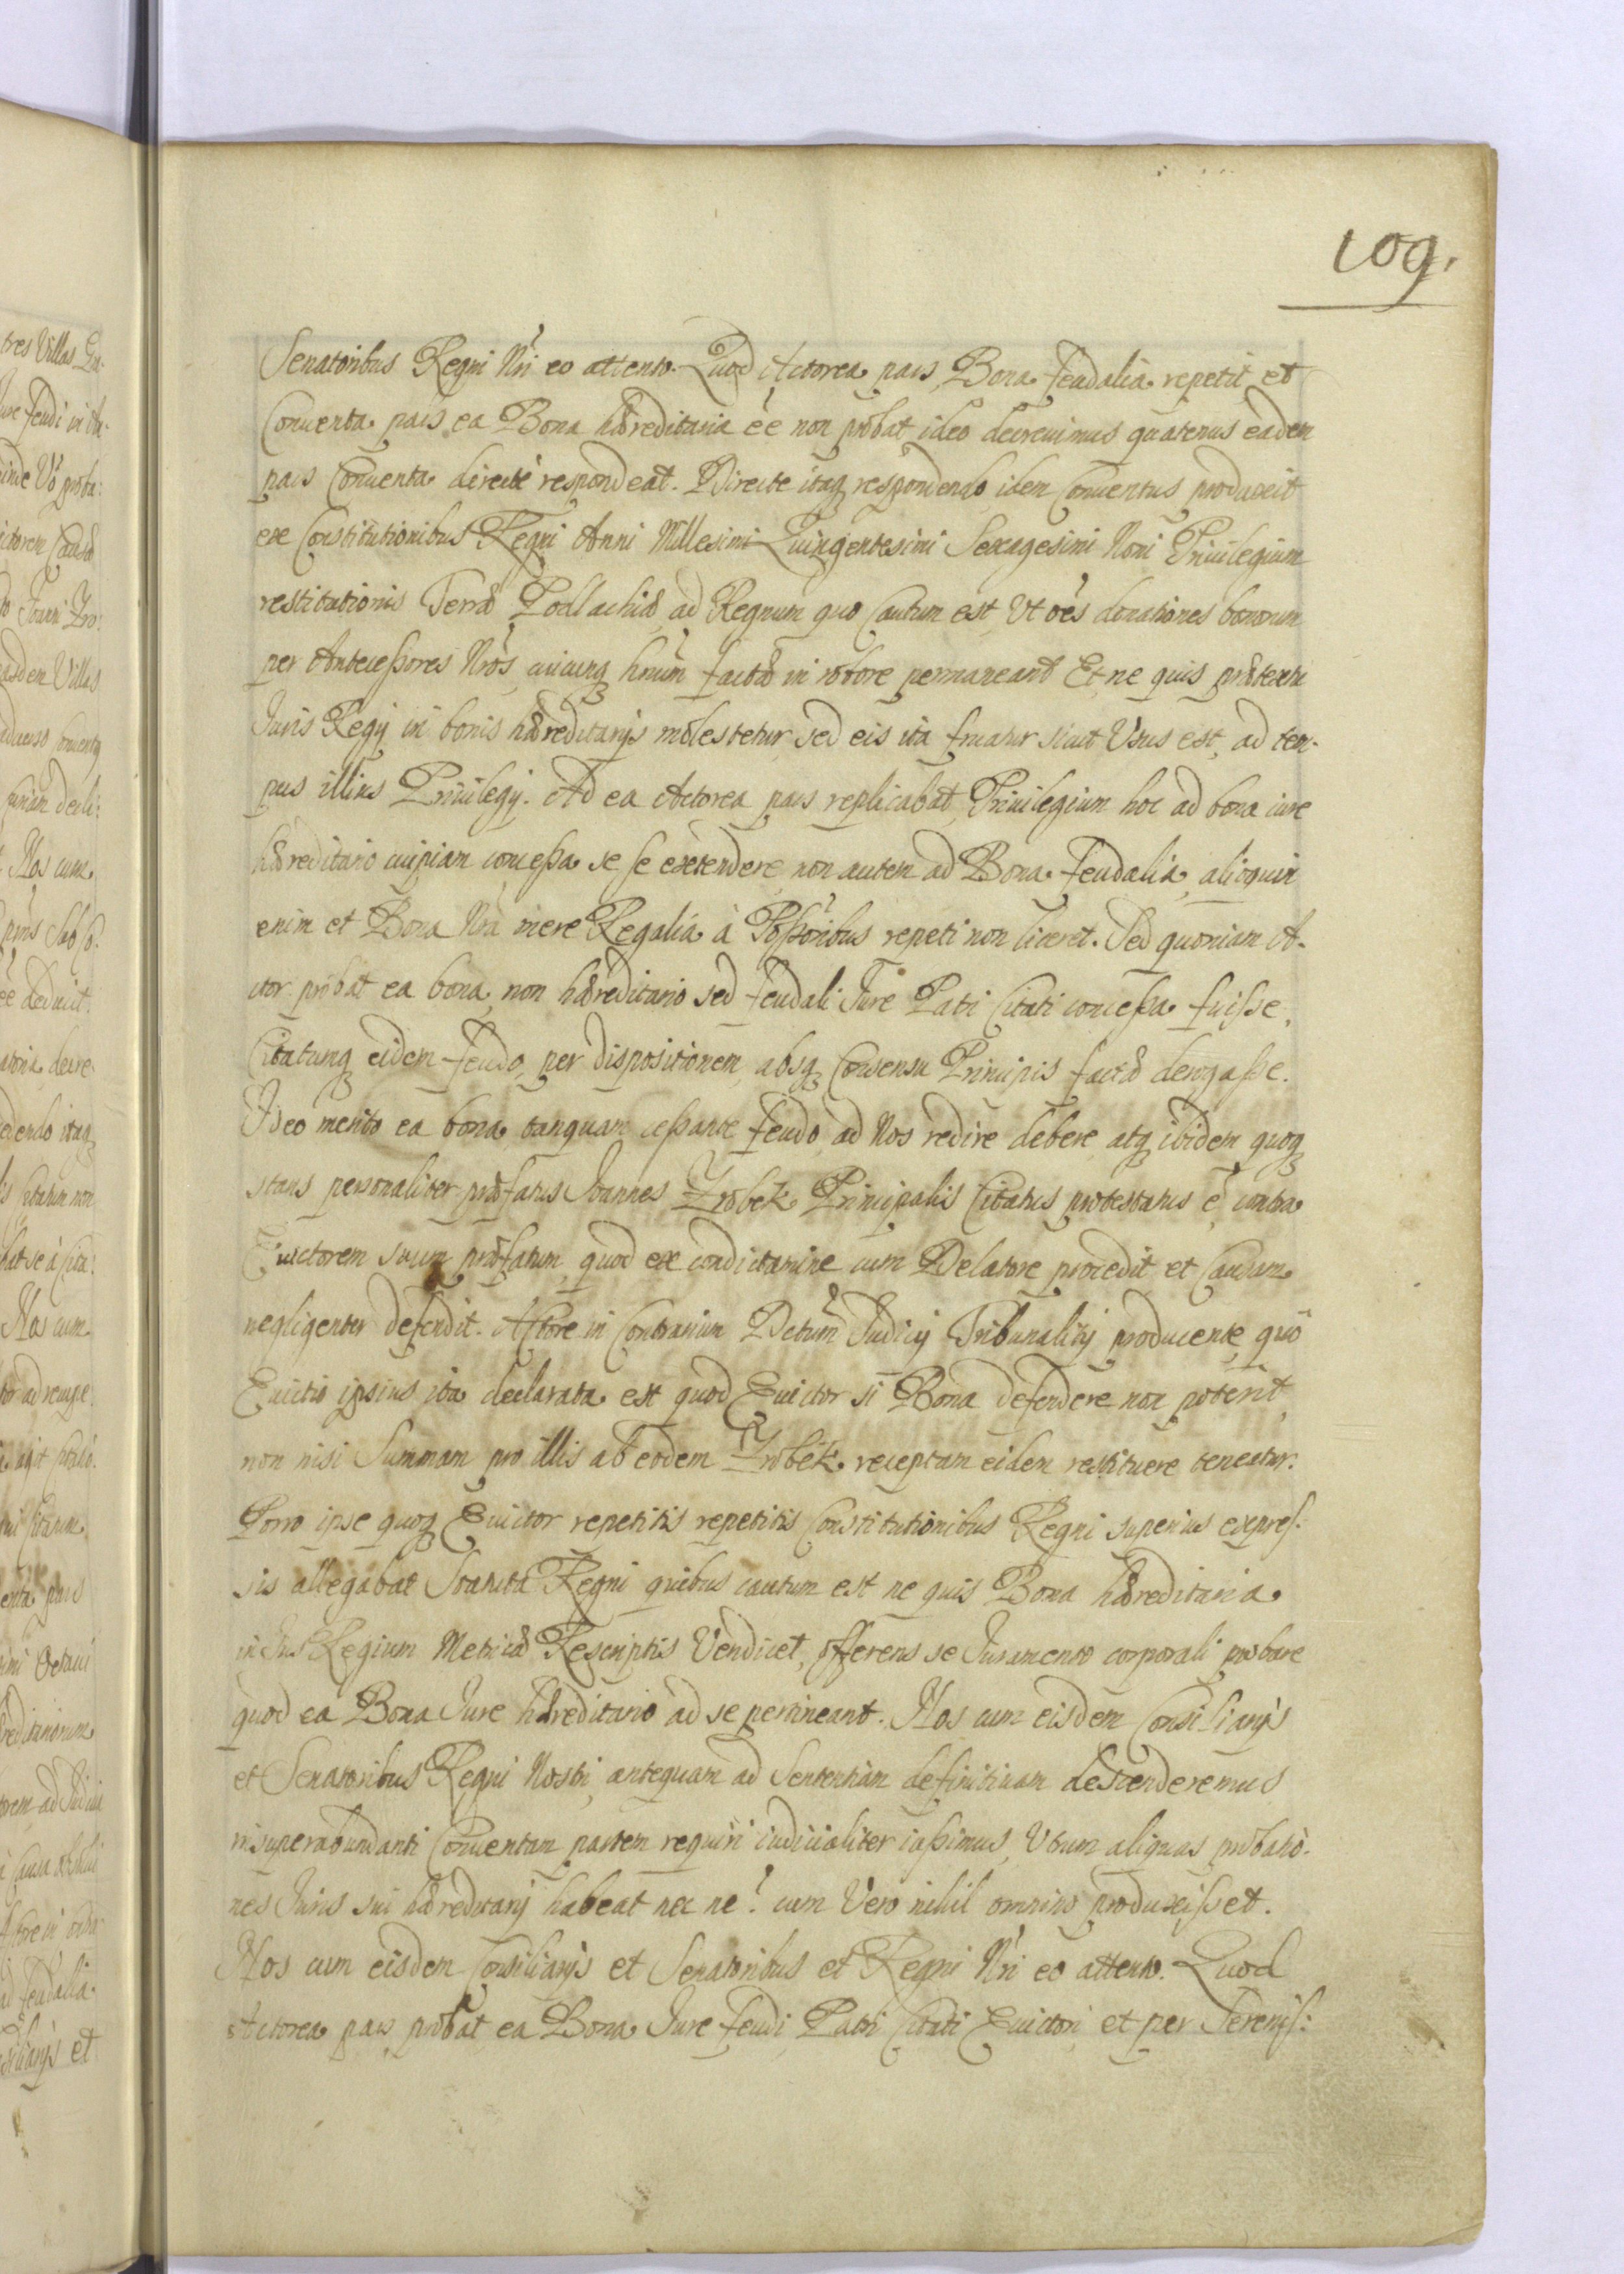 109.
Senatoribus Regni Nri eo attento. Quod Actorea pars Bona feudalia repetit et
Conuenta pars ea Bona hæreditaria ee non probat ideo decreuimus quatenus eadem
pars Conuenta directe respondeat. Directe itaq respondendo idem Conuentus produxit
ex Constitutionibus Regni Anni Millesimi Quingentesimi Sexagesimi Noni Priuilegium
restitutionis Terræ Podlachiæ ad Regnum quo Cautum est Vt oes donationes bonorum
per Antecessores Nros cuicunq hnum factæ in robore permaneant Et ne quis prætextu
Juris Regij in bonis hæreditarijs molestetur sed eis ita fruatur sicut Vsus est, ad tem-
pus illius Priuilegij. Ad ea Actorea pars replicabat Priuilegium hoc ad bona iure
hæreditario cuipiam concessa se se extendere non autem ad Bona feudalia, alioquin
enim et Bona Nra mere Regalia à Possoribus repeti non liceret. Sed quoniam A-
ctor probat ea bona non hæreditario sed feudali Jure Patri Citati concessa fuisse,
Citatumq eidem feudo, per dispositionem absq Consensu Principis factæ derogasse.
Ideo merito ea bona tanquam cessante feudo ad Nos redire debere atq ibidem quoq
stans personaliter præfatus Joannes Zrobek Principalis Citatus protestatus e contra
Euictorem suum præfatum quod ex condictamine cum Delatore procedit et Causam
negligenter defendit. Actore in Contrarium Dctum Judicij Tribunalitij producente, quo
Euictio ipsius ita declarata est quod Euictor si Bona defendere non poterit,
non nisi Summam pro illis ab eodem Zrobek receptam eidem restituere teneatur.
Porro ipse quoq Euictor repetitis repetitis Constitutionibus Regni superius expres-
sis allegabat Statuta Regni quibus cautum est ne quis Bona hæreditaria
in Jus Regium Metricæ Rescriptis Vendicet, offerens se Juramento corporali probare
quod ea Bona Jure hæreditario ad se pertineant. Nos cum eisdem Consiliarijs
et Senatoribus Regni Nostri, antequam ad Sententiam definitiuam descenderemus
in superabundanti Conuentam partem requiri iudicialiter iussimus, Vtrum aliquas probatio-
nes Juris sui hæreditarij habeat nec ne? cum Vero nihil omnino produxisset.
Nos cum eisdem Consiliarijs et Senatoribus et Regni Nri eo attento. Quod
Actorea pars probat ea Bona Jure feudi Patri Citati Euictori et per Sereniss: